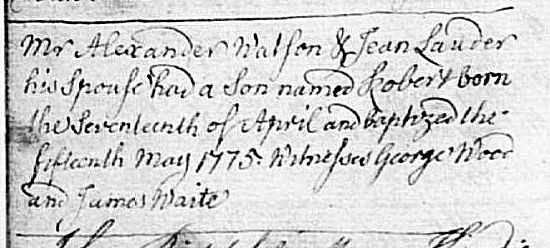 Mr Alexander Watson & Jean Lauder
his Spouse had a Son named Robert born
the Seventeenth of April and baptized the
fifteenth May 1775. Witnesses George Wood
and James Waite